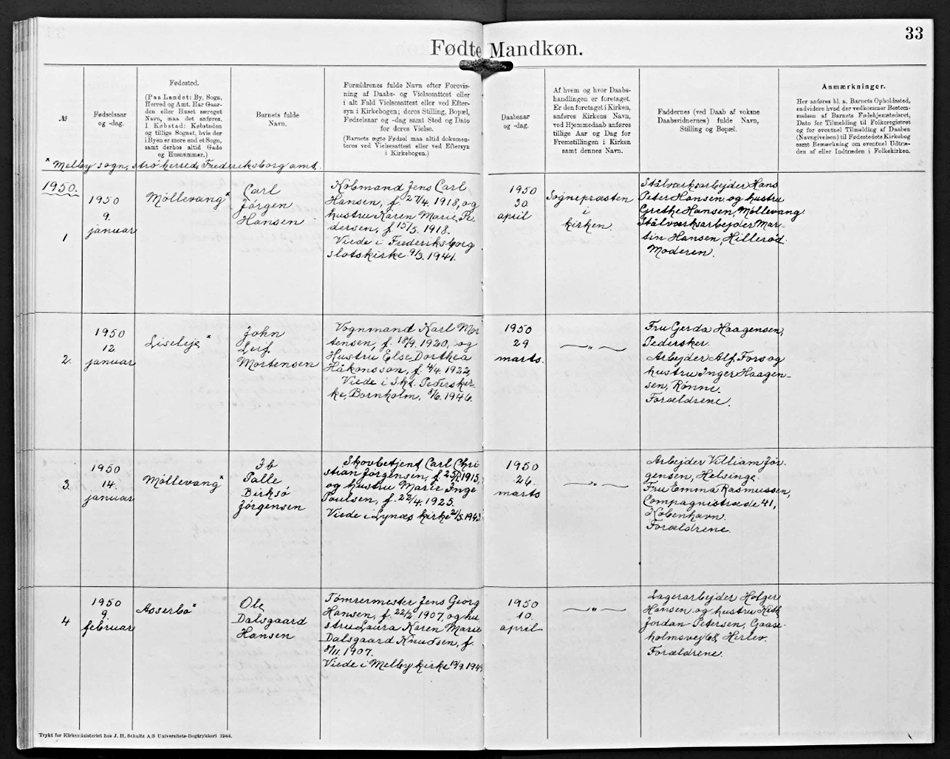 33
Født Mandkøn.
№
Fødselsaar
og -dag.
Fødested.
(Paa Landet: By, Sogn,
Herred og Amt. Har Gaar-
den eller Huset særeget
Navn, maa det anføres.
I Købstad: Købstaden
og tillige Sognet, hvis der
i Byen er mere end et Sogn,
samt derhos altid Gade
og Husnummer.)
Barnets fulde
Navn.
Forældrenes fulde Navn efter Forevis-
ning af Daabs- og Vielsesattest eller
i alt Fald Vielsesattest eller ved Efter-
syn i Kirkebogen; deres Stilling, Bopæl,
Fødselsaar og -dag samt Sted og Dato
for deres Vielse.
(Barnets ægte Fødsel maa altid dokumen-
teres ved Vielsesattest eller ved Eftersyn
i Kirkebogen.)
Daabsaar
og -dag.
Af hvem og hvor Daabs-
handlingen er foretaget.
Er den foretaget i Kirken,
anføres Kirkens Navn,
ved Hjemmedaab anføres
tillige Aar og Dag for
Fremstillingen i Kirken
samt dennes Navn.
Faddernes (ved Daab af voksne
Daabsvidnernes) fulde Navn,
Stilling og Bopæl.
Anmærkninger.
Her anføres bl. a. Barnets Opholdssted,
endvidere hvad der vedkommer Bestem-
melsen af Barnets Fødehjemsteder,
Dato for Tilmelding til Folkeregistret
og for eventuel Tilmelding af Daaben
(Navngivelsen) til Fødestedets Kirkebog
samt Bemærkning om eventuel Udtræ-
den af eller Indtræden i Folkekirken.
* Melby sogn, Strø herred, Frederiksborg amt.
1950.
1
1950
9.
januar
Møllevang *
Carl
Jörgen
Hansen
Købmand Jens Carl
Hansen, f. 27/4. 1918, og
hustru Karen Marie Pe-
dersen, f 15/5. 1918.
Viede i Frederiksborg
slotskirke 9/3. 1941.
1950
30
april
Sognepræsten
i
kirken.
Stålværksarbejder Hans
Peter Hansen og hustru
Grethe Hansen, Møllevang
Stålværksarbejder Mar-
tin Hansen, Hillerød.
Moderen.
2.
1950
12
januar
Liseleje *
John
Leif
Mortensen
Vognmand Karl Mor
tensen, f. 1920, og
Hustru Else Dorthea
Håkonsson, f. 9/4. 1922,
Viede i Skt. Pedersker-
ke, Bornholm, 1946.
1950
29
marts.
— " —
Fru Gerda Haagensen,
Pedersker.
Arbejder Alf Fors og
hustru Inger Haagen-
sen, Rønne.
Forældrene.
3.
1950
14.
januar
Møllevang *
Ib
Palle
Birksø
Jørgensen
Skovbetjent Carl Chri
stian Jørgensen, f. 1915,
og hustru Marie Inge
Poulsen, f. 22/4. 1923.
Viede i Lynæs kirke
1950
26.
marts
— " —
Arbejder Villiam Jör-
gensen, Helsinge.
Fru Emma Rasmussen,
Compagnistræde 41,
København.
Forældrene.
4
1950
9.
februar
Asserbo *
Ole
Dalsgaard
Hansen
Tømrermester Jens Georg
Hansen, f. 22/2. 1907, og hu
stru Laura Karen Marie
Dalsgaard Knudsen, f.
1907.
Viede i Melby kirke
1950
10.
april
— " —
Lagerarbejder Holger
Hansen og hustru
Jordan Petersen, Gaase-
holmsvej Herlev.
Forældrene.
Trykt for Kirkeministeriet hos J. H. Schultz A/S Universitets-Bogtrykkeri 1944.